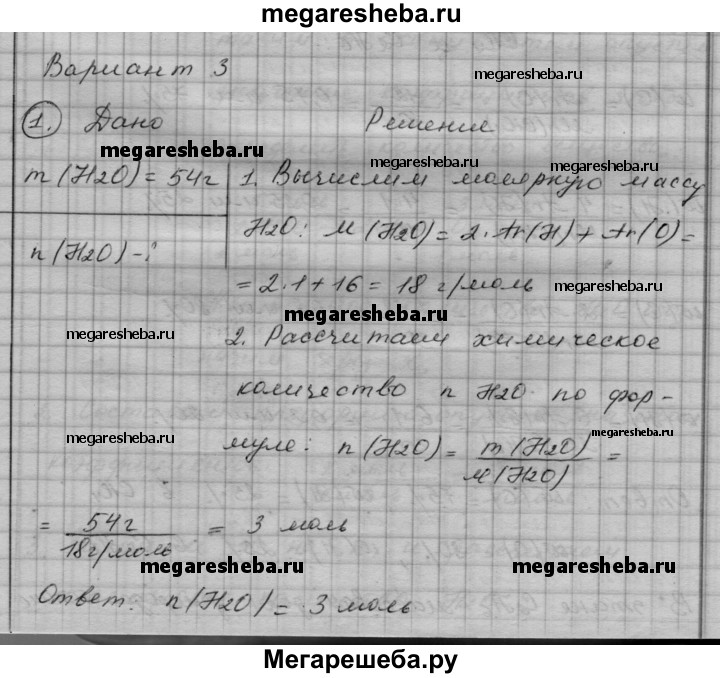 megaresheba.ru
Вариант 3
megaresheba.ru
1. Дано Решение
megaresheba.ru
megaresheba.ru
megaresheba.ru
m (H2O) = 54г
1. Вычислим молярную массу
H2O: M (H2O) = 2·Ar(H) + Ar(O) =
n (H2O) - ?
= 2·1 + 16 = 18 г/моль
megaresheba.ru
megaresheba.ru
megaresheba.ru
2. Рассчитаем химическое
megaresheba.ru
количество n H2O по фор-
megaresheba.ru
megaresheba.ru
муле: n (H2O) = m (H2O) / M (H2O) =
= 54г / 18г/моль = 3 моль
megaresheba.ru
megaresheba.ru
Ответ: n (H2O) = 3 моль
Мегарешеба.ру